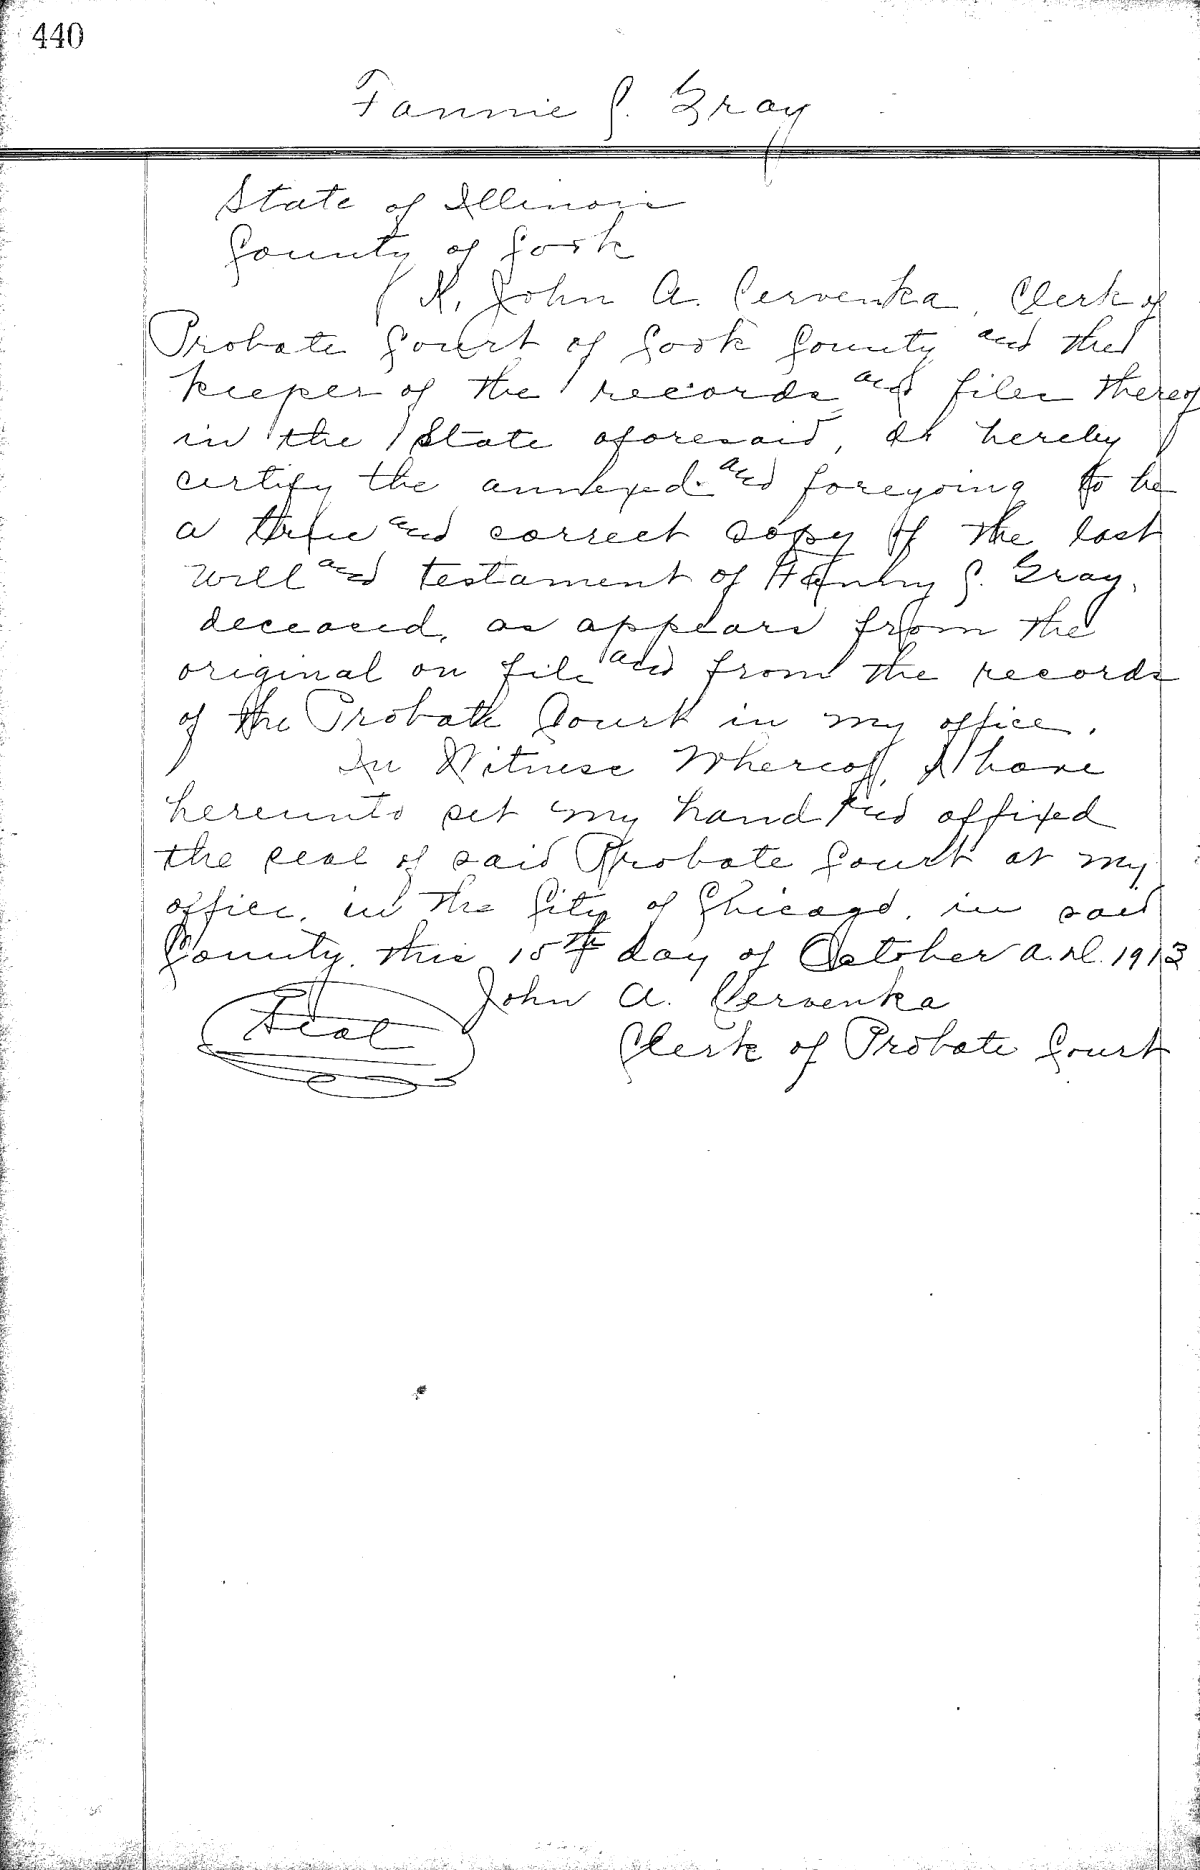 440
Fannie S. Gray
State of Illinois
County of Cook
I, John A. Cervenka, Clerk of
Probate Court of Cook County and the
keeper of the records and files thereof
in the State aforesaid, do hereby
certify the annexed and foregoing to be
a true and correct copy of the last
will and testament of S. Gray,
deceased, as appears from the
original on file and from the records
of the Probate Court in my office.
In Witness Whereof, I have
hereunto set my hand and affixed
the seal of said Probate Court at my
office, in the City of Chicago, in said
County, this 15th day of October A.D. 1913
John A. Cervenka
Seal
Clerk of Probate Court